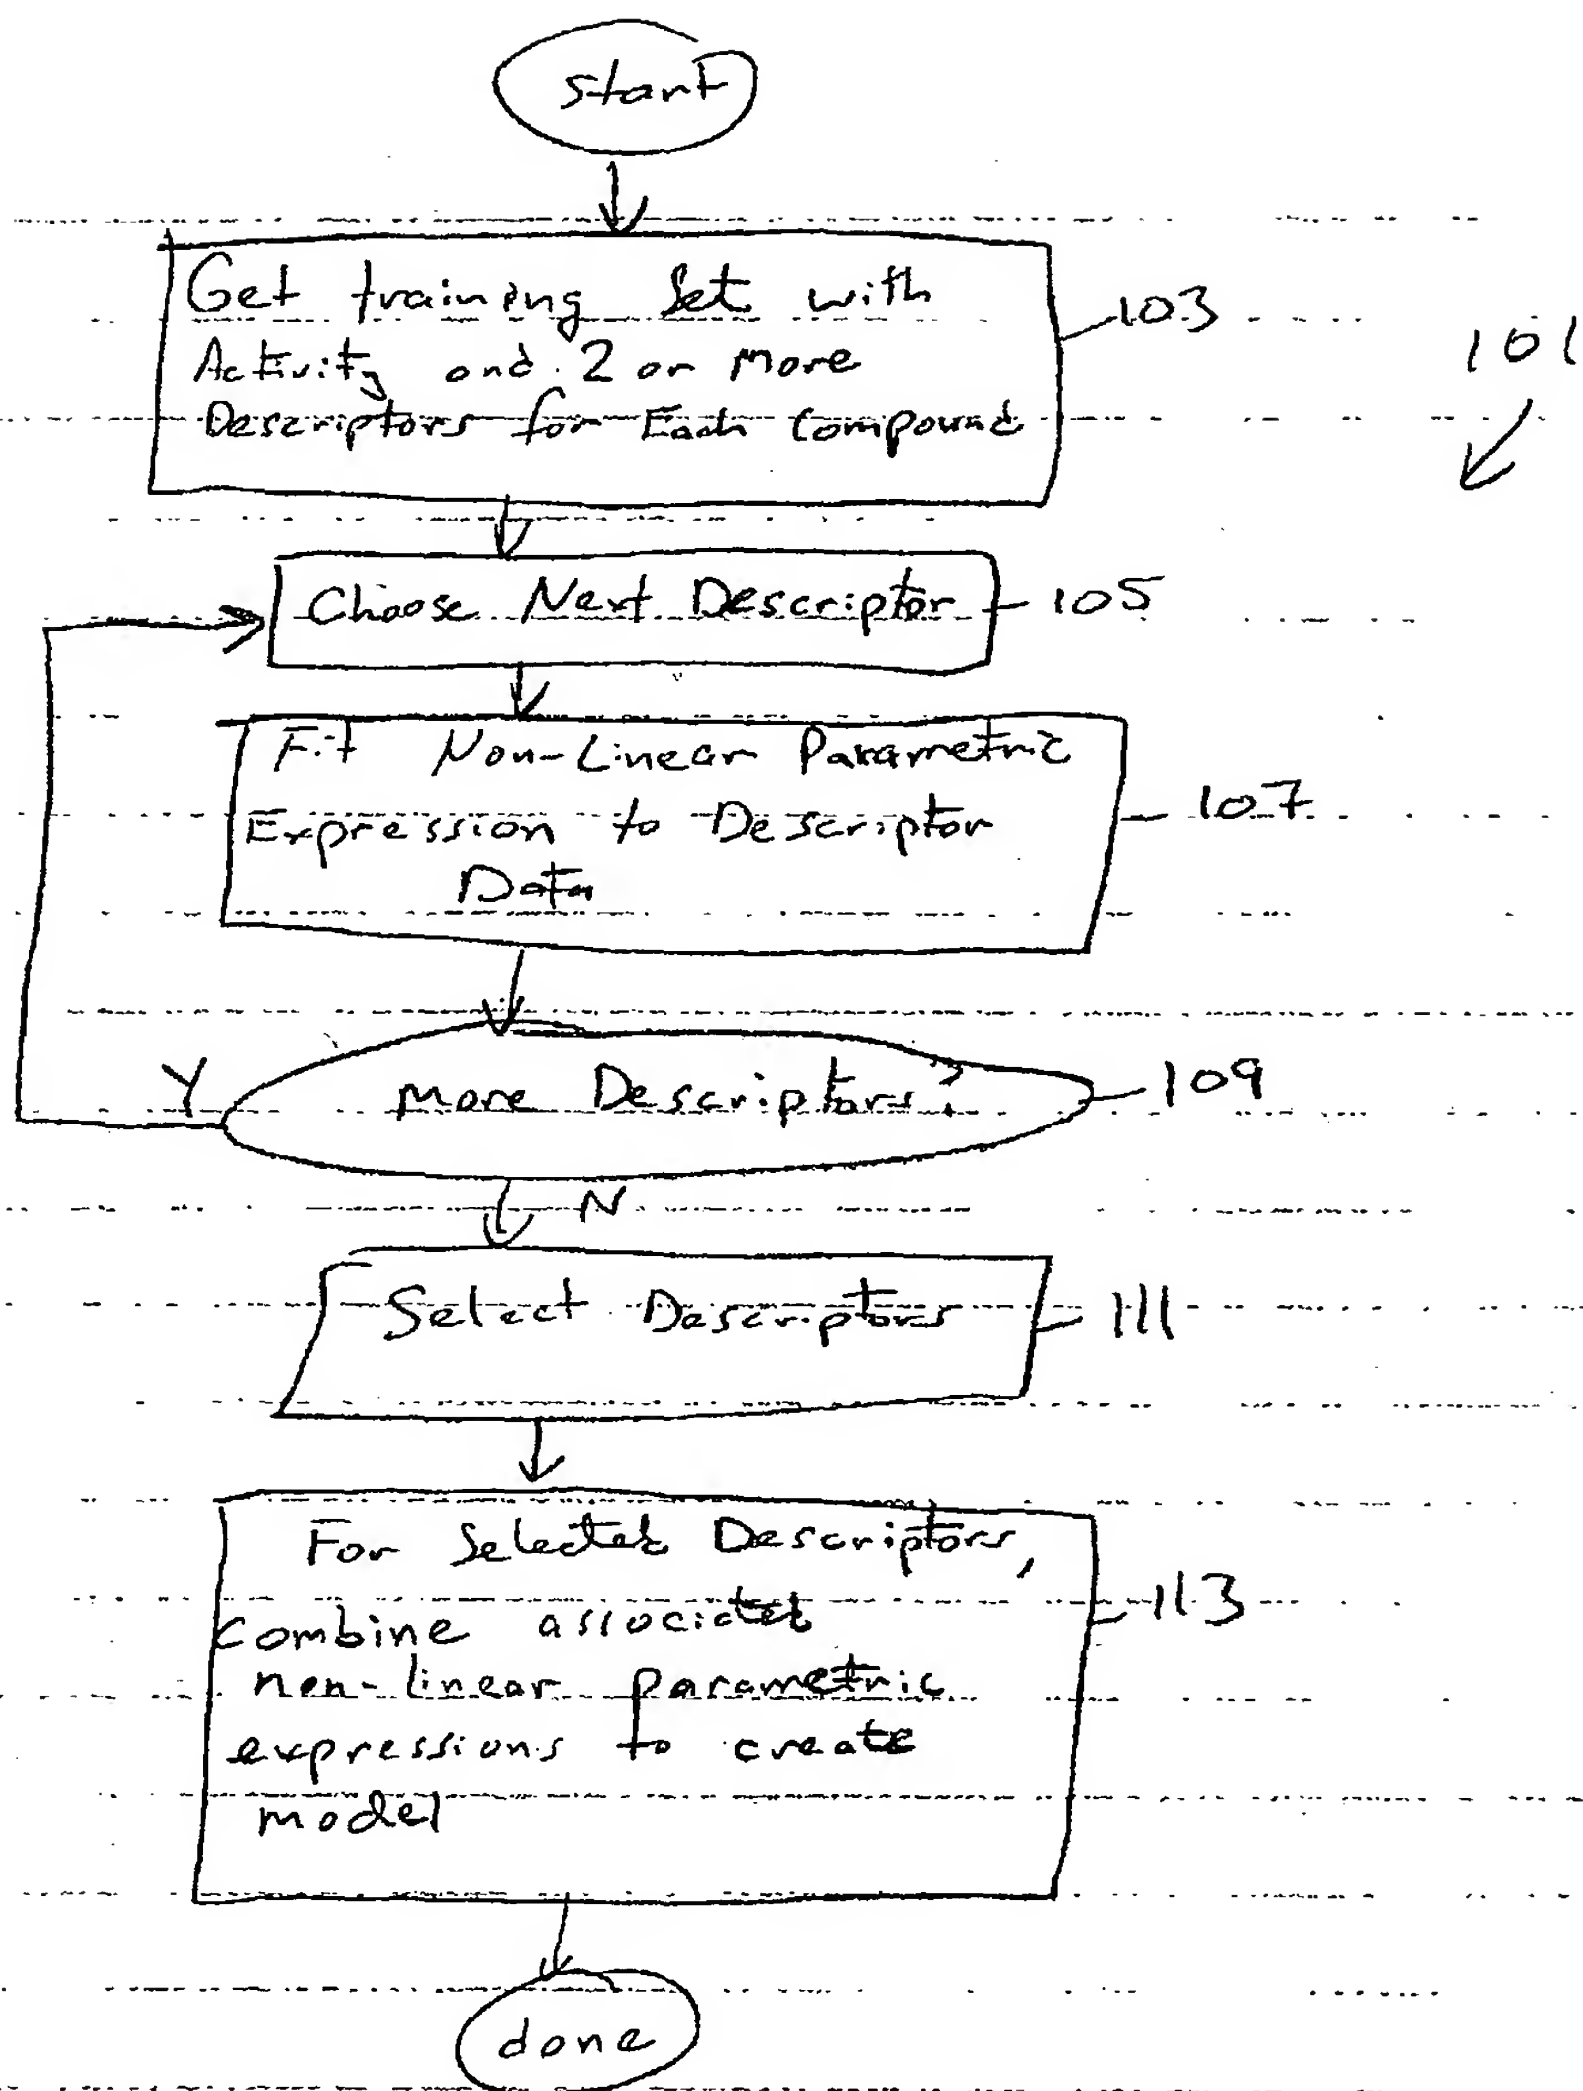 start
Get training Set with
Activity and 2 or More
Descriptors for Each Compound
103
101
Choose Next Descriptor
105
Fit Non-Linear Parametric
Expression to Descriptor
Data
107
More Descriptors?
109
Y
N
Select Descriptors
111
For Selected Descriptors,
combine associated
non-linear parametric
expressions to create
model
113
done